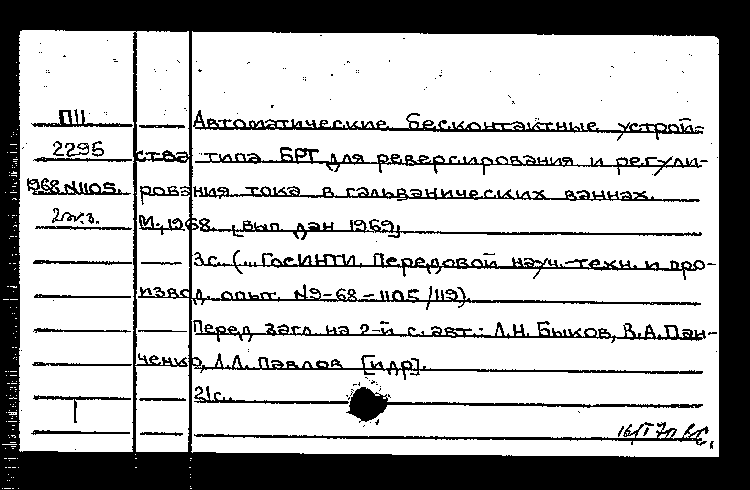 П11 Автоматические бесконтактные устрой-
2295 ства типа БРТ для реверсирования и регули-
1968 N1105. рования тока в гальванических ваннах.
2экз. М., 1968. [вып. дан 1969]
3с. (... ГосИНТИ. Передовой науч.-техн. и про-
извод. опыт. N9-68-1105/119).
Перед загл. на 2-й с. авт.: Л.Н. Быков, В.А. Пан-
ченко, Л.Л. Павлов [и др].
21с.
1